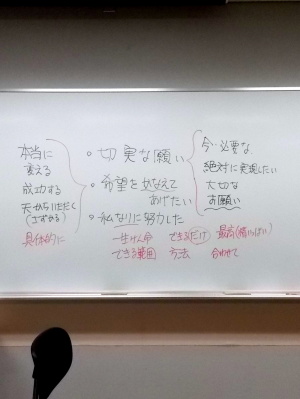 本当に
変える
成功する
天からいただく
(さずかる)
具体的に
・切実な願い
・希望をかなえて
あげたい
・私なりに努力した
一生けん命 できるだけ 最高(精いっぱい)
できる範囲 方法 合わせて
今・必要な
絶対に実現したい
大切な
お願い